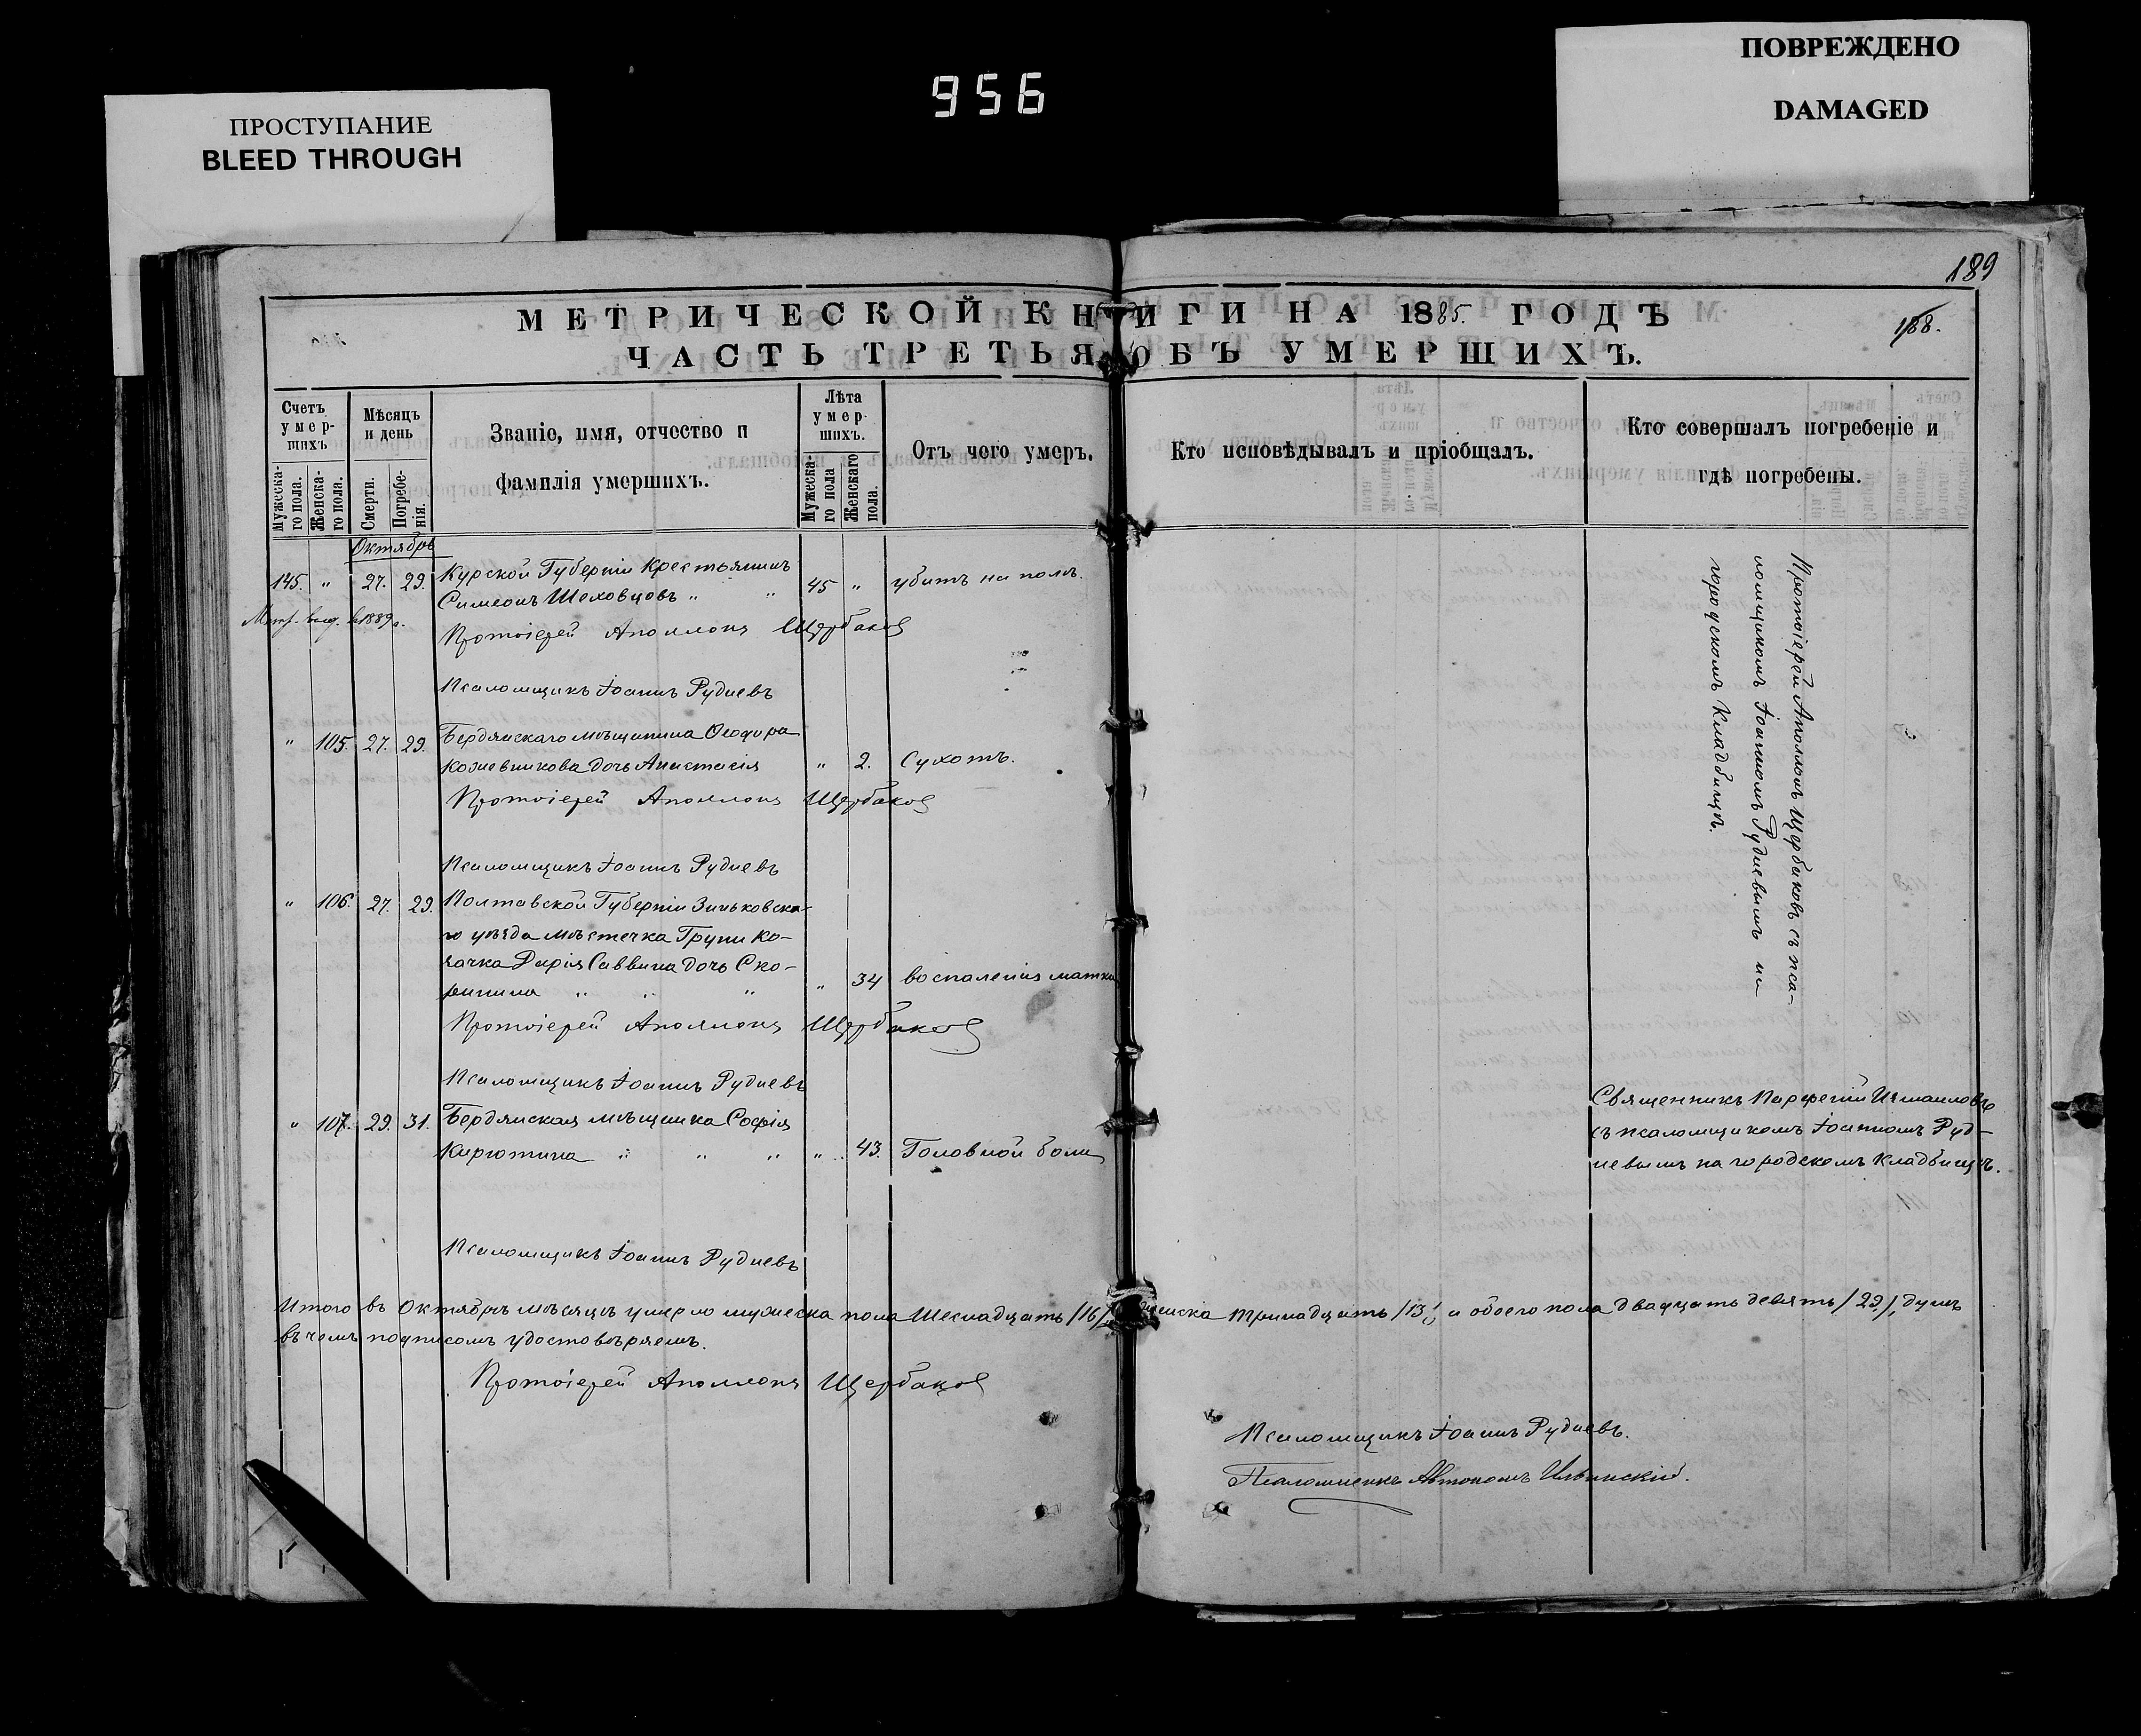 956
ПРОСТУПАНИЕ
BLEED THROUGH
ПОВРЕЖДЕНО
DAMAGED
189
МЕТРИЧЕСКОЙ КНИГИ НА 1885. ГОДЪ
188.
ЧАСТЬ ТРЕТЬЯ ОБЪ УМЕРШИХЪ.
Счетъ умершихъ
Мужескаго пола.
Женскаго пола.
Мѣсяцъ и день
Смерти.
Погребенія.
Званіе, имя, отчество и
фамилія умершихъ.
Лѣта умершихъ.
Мужескаго пола
Женскаго пола.
Отъ чего умеръ.
Кто исповѣдывалъ и пріобщалъ.
Кто совершалъ погребеніе и
гдѣ погребены.
Октябрь
145. " 27. 29. Курской Губерніи Крестьянинъ
Симеонъ Шеховцовъ " " 45 " убитъ на полѣ.
1889 г.
Протоіерей Аполлонъ Щербаков
Псаломщикъ Іоаннъ Рудневъ
" 105. 27. 29. Бердянскаго мѣщанина Ѳеодора
Кожевникова дочь Анастасія " 2. Сухотъ.
Протоіерей Аполлонъ Щербаков
Псаломщикъ Іоаннъ Рудневъ
" 106. 27. 29. Полтавской Губерніи Зиньковска-
го уѣзда мѣстечка Груни Ко-
зачка Дарія Саввина дочь Ско-
рикина " " " " 34 воспаленія матки
Протоіерей Аполлонъ Щербаков
Псаломщикъ Іоаннъ Рудневъ
" 107. 29. 31. Бердянская мѣщанка Софія
Кирютина " " " " 43. Головной боли
Псаломщикъ Іоаннъ Рудневъ
Протоіерей Аполлонъ Щербаковъ съ пса-
ломщикомъ Іоанномъ Рудневымъ на
городскомъ Кладбищѣ.
Священникъ Парфеній Измаиловъ
съ псаломщикомъ Іоанномъ Руд-
невымъ на городскомъ Кладбищѣ.
Итого въ Октябрѣ мѣсяцѣ умерло мужеска пола Шеснадцать /16/, женска тринадцать /13/, и обоего пола двадцать девять /29/, душъ
въ чемъ подписомъ удостовѣряемъ.
Протоіерей Аполлонъ Щербаков
Псаломщикъ Іоаннъ Рудневъ.
Псаломщикъ Автономъ Ильинскій.